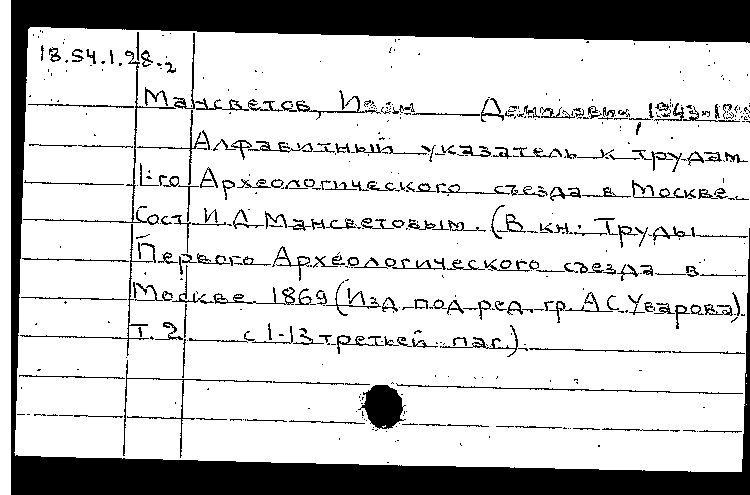 18.54.1.28.2
Мансветов, Иван Данилович, 1843-18
Алфавитный указатель к трудам
1-го Археологического съезда в Москве.
Сост. И.Д. Мансветовым. (В кн.: Труды
Первого Археологического съезда в
Москве. 1869 (Изд. под ред. гр. А.С. Уварова).
Т. 2. с 1-13 третьей паг.).